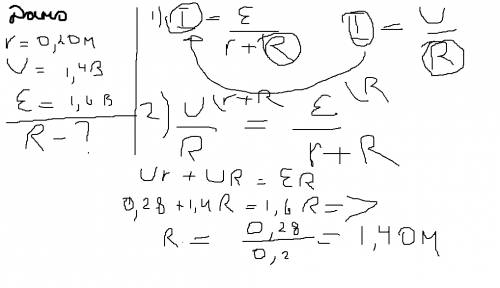 Дано
r = 0,2 Ом
U = 1,4 В
ε = 1,6 В
R - ?
1) I = ε / (r + R)   I = U / R
2) U \r+R / R = ε \R / (r + R)
Ur + UR = εR
0,28 + 1,4 R = 1,6 R =>
R = 0,28 / 0,2 = 1,4 Ом